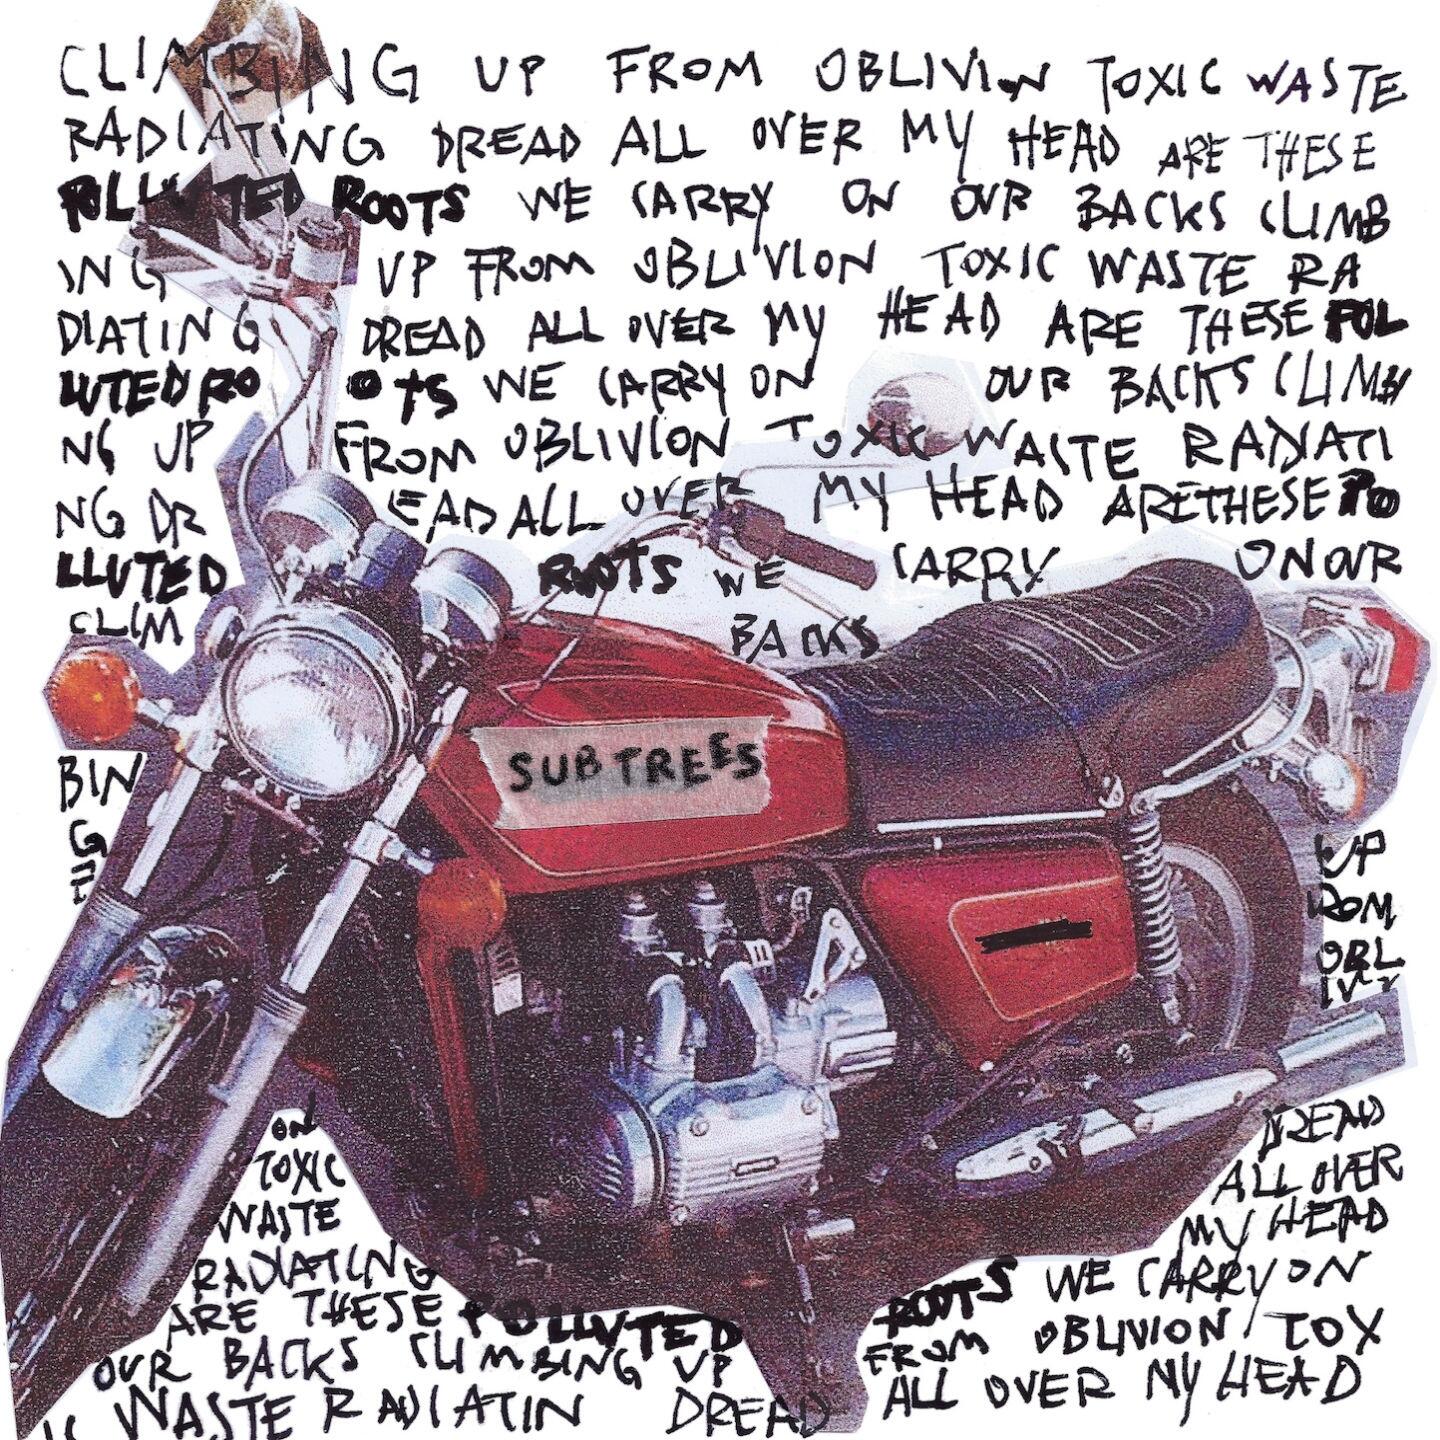 CLIMBING UP FROM OBLIVION TOXIC WASTE
RADIATING DREAD ALL OVER MY HEAD ARE THESE
POLLUTED ROOTS WE CARRY ON OUR BACKS CLIMB
ING UP FROM OBLIVION TOXIC WASTE RA
DIATING DREAD ALL OVER MY HEAD ARE THESE POL
LUTED RO OTS WE CARRY ON OUR BACKS CLIMBI
NG UP FROM OBLIVION TOXIC WASTE RADIATI
NG DR EAD ALL OVER MY HEAD ARE THESE PO
LLUTED ROOTS WE CARRY ON OUR
CLIM BACKS
SUBTREES
BIN
G UP
F ROM
OBL
IVI
ON DREAD
TOXIC ALL OVER
WASTE MY HEAD
RADIATING ROOTS WE CARRY ON
ARE THESE POLLUTED FROM OBLIVION TOX
OUR BACKS CLIMBING UP ALL OVER MY HEAD
IC WASTE RADIATIN DREAD